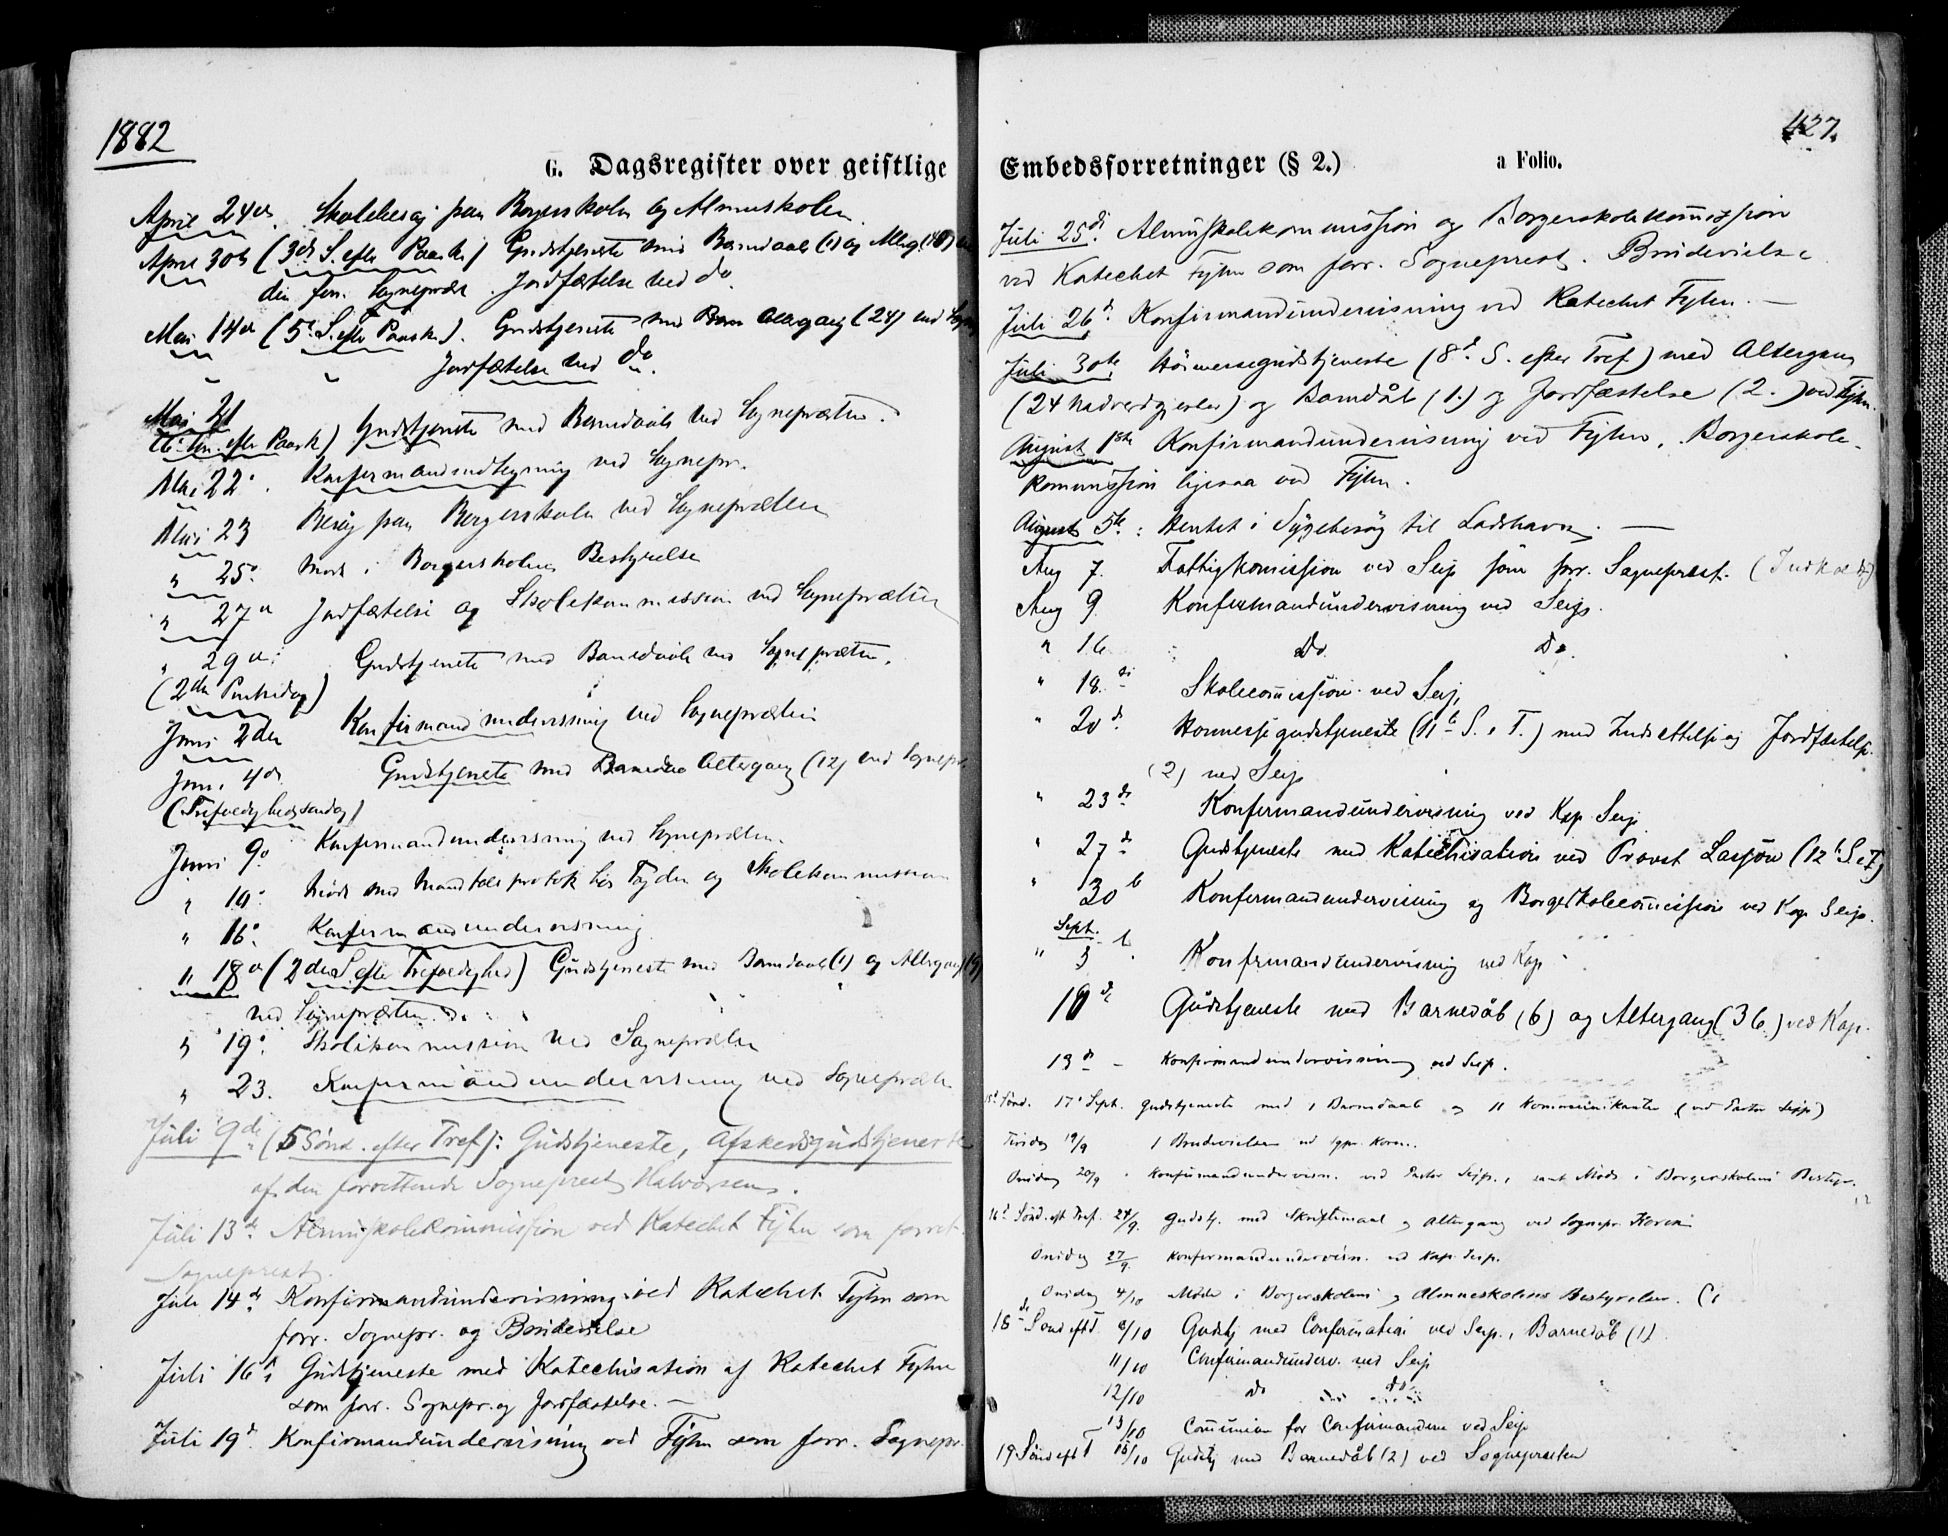 1882
G. Dagsregister over geistlige
April 24de. Skolebesøg paa Borgerskolen og Almueskolen.
April 30te (3de S. efter Paaske) Gudstjeneste med Barnedaab (1) og Alterg. (18) ved
den forr. Sognepræst. Jordfæstelse ved do.
Mai 14de (5te S. efter Paaske). Gudstjeneste med Altergang (24) ved Sogn
Jordfæstelse ved do.
Mai 21
(6te Sn. efter Paask) Gudstjeneste med Barnedaab ved Sognepræsten.
Mai 22. Konfirmandundervisning ved Sognepr.
Mai 23 Besøg paa Borgerskolen ved Sognepræsten
" 25. Møde i Borgerskolens Bestyrelse
" 27de Jordfæstelse og Skolekommission ved Sognepræsten
" 29de. Gudstjeneste med Barnedaab ved Sognepræsten.
(2den Pintsedag)
Juni 2den Konfirmandundervisning ved Sognepræsten
Juni 4de Gudstjeneste med Barnedaab Altergang (12) ved Sognepr
(Trefoldighedssøndag)
Juni 9. Konfirmandundervisning ved Sognepræsten.
" 10. Møde med Mandtalsprotok hos Fogden og Skolekommission
" 16. Konfirmandundervisning
" 18de (2den S. efter Trefoldighed) Gudstjeneste med Barnedaab (1) og Altergang
ved Sognepræsten.
" 19. Skolekommission ved Sognepræsten
" 23. Konfirmandundervisning ved Sognepræsten
Juli 9de (5 Sønd. efter Tref): Gudstjeneste, Afskedsgudstjeneste
af den forrettende Sogneprest Halvorsen.
Juli 13de Almuskolekommission ved Katechet Fyhn som forret.
Sogneprest.
Juli 14de Konfirmandundervisning ved Katechet Fyhn som
forr. Sognepr. og Brudevielse
Juli 16de Gudstjeneste med Katechisation af Katechet Fyhn
som forr. Sognepr. og Jordfæstelse. —
Juli 19de Konfirmandundervisning ved Fyhn som forr. Sognepr.
427.
Embedsforretninger (§ 2.) a Folio.
Juli 25de. Almuskolekommission og Borgerskolekommission
ved Katechet Fyhn som forr. Sogneprest. Brudevielse
Juli 26de Konfirmandundervisning ved Katechet Fyhn. —
Juli 30te Høimessegudstjeneste (8de S. efter Tref) med Altergang
(24 Nadverdgjester) og Barnedåb (1.) og Jordfæstelse (2.) ved Fyhn.
August 1ste Konfirmandundervisning ved Fyhn, Borgerskole-
kommission ligesaa ved Fyhn.
August 5te: Hentet i Sygebesøg til Ladshavn. —
Aug 7. Fattigkomission ved Seip som forr. Sogneprest. (Indkaldt)
Aug 9. Konfirmandundervisning ved Seip.
" 16 Do. Do.
" 18.de Skolecomission ved Seip
" 20de Høimessegudstjeneste (11te S. e. T.) med Indsættelse og Jordfæstelse
(2) ved Seip
" 23de Konfirmandundervisning ved Kap Seip
" 27de Gudstjeneste med Katechisation ved Provst Lassen (12te S. e. T)
" 30te Konfirmandundervisning og Borgerskolecomission ved Kap Seip.
Sept.
" 3 Konfirmandundervisning ved Kap
10de Gudstjeneste med Barnedåb (6) og Altergang (36.) ved Kap.
13de – Konfirmandundervisning ved Seip.
15de Sønd. 17. Sept. Gudstjeneste med 1 Barnedaab og 11 Kommunikanter (ved Pastor Seip)
Tirsdag 19/9 1 Brudevielse ved Sgpr. Koren.
Onsdag 20/9 Konfirmandundervisn. ved Pastor Seip., samt Møde i Borgerskolens Bestyr.
16de Sønd. eft Tref. 24/9. Gudstj. med Skriftemaal og Altergang ved Sognepr Koren
Onsdag 27/9. Konfirmandundervisn. ved Kap. Seip.
Onsdag 4/10 Møde i Borgerskolens og Almueskolens Bestyrelser.
18de Sønd eft T 8/10 Gudstj med Confirmation ved Seip., Barnedåb (1).
11/10 Confirmandunderv. ved Seip
12/10 do do
13/10 Communion for Confirmanderne ved Seip
19 Sønd eft T 15/10 Gudstj med Barnedåb (2) ved Sognepræsten